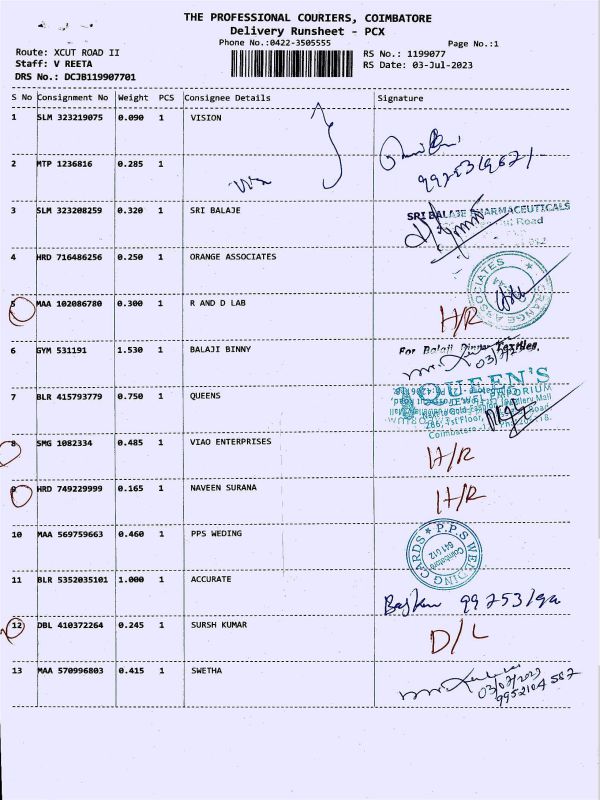 THE PROFESSIONAL COURIERS, COIMBATORE
Delivery Runsheet - PCX
Phone No.:0422-3505555
Page No.:1
Route: XCUT ROAD II
RS No.: 1199077
Staff: V REETA
RS Date: 03-Jul-2023
DRS No.: DCJB119907701
S No Consignment No Weight PCS Consignee Details Signature
1 SLM 323219075 0.090 1 VISION
2 MTP 1236816 0.285 1
3 SLM 323208259 0.320 1 SRI BALAJE
SRI BALAJE PHARMACEUTICALS
Road
4 HRD 716486256 0.250 1 ORANGE ASSOCIATES
ORANGE ASSOCIATES
5 MAA 102086780 0.300 1 R AND D LAB H/R
6 GYM 531191 1.530 1 BALAJI BINNY
For Balaji Binny Textiles.
7 BLR 415793779 0.750 1 QUEENS
QUEEN'S
8 SMG 1082334 0.485 1 VIAO ENTERPRISES H/R
9 HRD 749229999 0.165 1 NAVEEN SURANA H/R
10 MAA 569759663 0.460 1 PPS WEDING
P.P.S WENDING CARDS
Coimbatore
641 012
11 BLR 5352035101 1.000 1 ACCURATE
12 DBL 410372264 0.245 1 SURSH KUMAR D/L
13 MAA 570996803 0.415 1 SWETHA
03/07/2023
9952104587